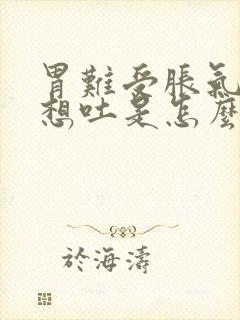 胃難受脹氣
想吐是怎麼
於海濤